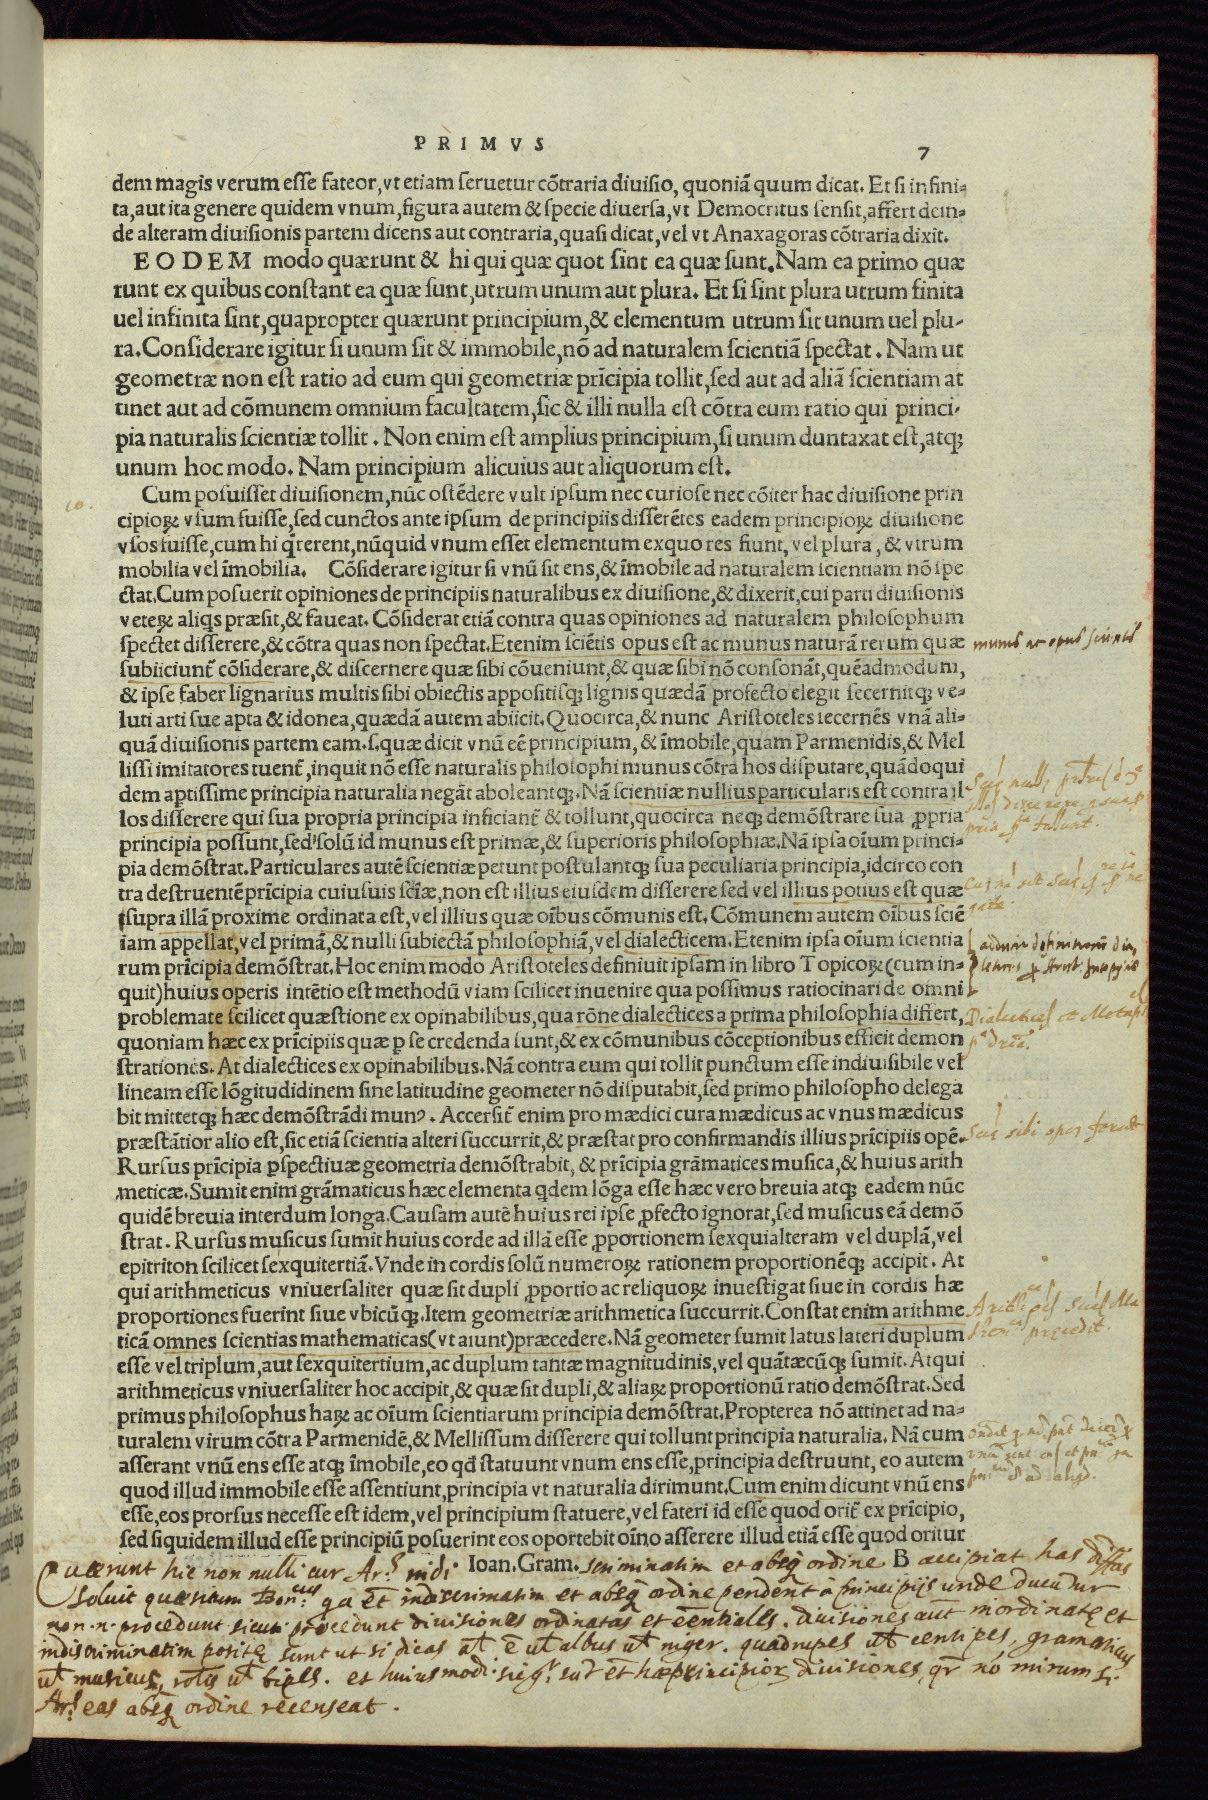 PRIMVS
7
dem magis verum esse fateor, vt etiam seruetur cõtraria diuisio, quoniã quum dicat. Et si infini-
ta, aut ita genere quidem vnum, figura autem & specie diuersa, vt Democritus sensit, affert dein-
de alteram diuisionis partem dicens aut contraria, quasi dicat, vel vt Anaxagoras cõtraria dixit.
EODEM modo quærunt & hi qui quæ quot sint ea quæ sunt. Nam ea primo quæ
runt ex quibus constant ea quæ sunt, utrum unum aut plura. Et si sint plura utrum finita
uel infinita sint, quapropter quærunt principium, & elementum utrum sit unum uel plu-
ra. Considerare igitur si unum sit & immobile, nõ ad naturalem scientiã spectat. Nam ut
geometræ non est ratio ad eum qui geometriæ prĩcipia tollit, sed aut ad aliã scientiam at
tinet aut ad cõmunem omnium facultatem, sic & illi nulla est cõtra eum ratio qui princi-
pia naturalis scientiæ tollit. Non enim est amplius principium, si unum duntaxat est, atqꝫ
unum hoc modo. Nam principium alicuius aut aliquorum est.
10.
Cum posuisset diuisionem, nũc ostẽdere vult ipsum nec curiose nec cõiter hac diuisione prin
cipioꝝ vsum fuisse, sed cunctos ante ipsum de principiis disserẽtes eadem principioꝝ diuisione
vsos fuisse, cum hi q̃rerent, nũquid vnum esset elementum ex quo res fiunt, vel plura, & vtrum
mobilia vel ĩmobilia. Cõsiderare igitur si vnũ sit ens, & ĩmobile ad naturalem scientiam nõ spe
ctat. Cum posuerit opiniones de principiis naturalibus ex diuisione, & dixerit, cui parti diuisionis
veteꝝ aliqs præsit, & faueat. Cõsiderat etiã contra quas opiniones ad naturalem philosophum
spectet disserere, & cõtra quas non spectat. Etenim sciẽtis opus est ac munus naturã rerum quæ
subiiciunt̃ cõsiderare, & discernere quæ sibi cõueniunt, & quæ sibi nõ consonãt, quẽadmodum,
& ipse faber lignarius multis sibi obiectis appositisqꝫ lignis quædã profecto elegit secernitqꝫ ve-
luti arti sue apta & idonea, quædã autem abiicit. Quocirca, & nunc Aristoteles secernẽs vnã ali-
quã diuisionis partem eam. s. quæ dicit vnũ eẽ principium, & ĩmobile, quam Parmenidis, & Mel
lissi imitatores tuent̃, inquit nõ esse naturalis philosophi munus cõtra hos disputare, quãdoqui
dem aptissime principia naturalia negãt aboleantqꝫ. Nã scientiæ nullius particularis est contra il-
los disserere qui sua propria principia inficiant̃ & tollunt, quocirca neqꝫ demõstrare sua ꝓpria
principia possunt, sed solũ id munus est primæ, & superioris philosophiæ. Nã ipsa oĩum princi-
pia demõstrat. Particulares autẽ scientiæ petunt postulantqꝫ sua peculiaria principia, idcirco con
tra destruentẽ prĩcipia cuiusuis sciẽ, non est illius eiusdem disserere sed vel illius potius est quæ
supra illã proxime ordinata est, vel illius quæ oĩbus cõmunis est. Cõmunem autem oĩbus sciẽ
iam appellat, vel primã, & nulli subiectã philosophiã, vel dialecticem. Etenim ipsa oĩum scientia
rum prĩcipia demõstrat. Hoc enim modo Aristoteles definiuit ipsam in libro Topicoꝝ (cum in-
quit) huius operis intẽtio est methodũ viam scilicet inuenire qua possimus ratiocinari de omni
problemate scilicet quæstione ex opinabilibus, qua rõne dialectices a prima philosophia differt,
quoniam hæc ex prĩcipiis quæ ꝑ se credenda sunt, & ex cõmunibus cõceptionibus efficit demon
strationes. At dialectices ex opinabilibus. Nã contra eum qui tollit punctum esse indiuisibile vel
lineam esse lõgitudidinem sine latitudine geometer nõ disputabit, sed primo philosopho delega
bit mittetqꝫ hæc demõstrãdi munꝰ. Accersit̃ enim pro mædici cura mædicus ac vnus mædicus
præstãtior alio est, sic etiã scientia alteri succurrit, & præstat pro confirmandis illius prĩcipiis opẽ.
Rursus prĩcipia ꝑspectiuæ geometria demõstrabit, & prĩcipia grãmatices musica, & huius arith
meticæ. Sumit enim grãmaticus hæc elementa q̃dem lõga esse hæc vero breuia atqꝫ eadem nũc
quidẽ breuia interdum longa. Causam autẽ huius rei ipse ꝓfecto ignorat, sed musicus eã demõ
strat. Rursus musicus sumit huius corde ad illã esse ꝓportionem sexquialteram vel duplã, vel
epitriton scilicet sexquitertiã. Vnde in cordis solũ numeroꝝ rationem proportionẽqꝫ accipit. At
qui arithmeticus vniuersaliter quæ sit dupli ꝓportio ac reliquoꝝ inuestigat siue in cordis hæ
proportiones fuerint siue vbicũqꝫ. Item geometriæ arithmetica succurrit. Constat enim arithme
ticã omnes scientias mathematicas (vt aiunt) præcedere. Nã geometer sumit latus lateri duplum
esse vel triplum, aut sexquitertium, ac duplum tantæ magnitudinis, vel quãtæcũqꝫ sumit. Atqui
arithmeticus vniuersaliter hoc accipit, & quæ sit dupli, & aliaꝝ proportionũ ratio demõstrat. Sed
primus philosophus haꝝ ac oĩum scientiarum principia demõstrat. Propterea nõ attinet ad na-
turalem virum cõtra Parmenidẽ, & Mellissum disserere qui tollunt principia naturalia. Nã cum
asserant vnũ ens esse atqꝫ ĩmobile, eo qđ statuunt vnum ens esse, principia destruunt, eo autem
quod illud immobile esse assentiunt, principia vt naturalia dirimunt. Cum enim dicunt vnũ ens
esse, eos prorsus necesse est idem, vel principium statuere, vel fateri id esse quod orit̃ ex prĩcipio,
sed siquidem illud esse principiũ posuerint eos oportebit oĩno asserere illud etiã esse quod oritur
Ioan. Gram. B
munus ac opus scientis
Quærunt hic non nulli cur Ar.s indi scriminatim et absqꝫ ordine accipiat has
ordine pendent à principijs unde ducuntur
procedunt divisiones ordinatas et eẽntiales. divisiones aut̃ inordinatę et
indiscriminatim positę sunt ut si dicas albus ut̃ niger. quadrupes centipes, gramaticus
ut̃ musicus, et huiusmodi divisiones, nõ mirum si
Ar.s eas absqꝫ ordine recenseat.